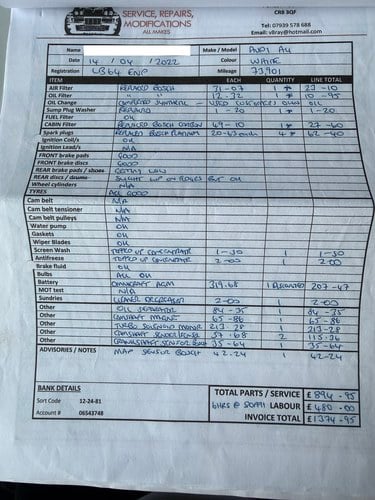 SERVICE, REPAIRS,
MODIFICATIONS
ALL MAKES
CR8 3QF
Tel: 07939 578 688
Email: vllray@hotmail.com
Name Make / Model AUDI A4
Date 14 / 04 / 2022 Colour WHITE
Registration Mileage 73901
ITEM EACH QUANTITY LINE TOTAL
AIR Filter REPLACED BOSCH 31-07 1
OIL Filter " " 12-32 1 10-95
OIL Change COMPLETED SYNTHETIC - USED CUSTOMERS OWN OIL
Sump Plug Washer REPLACED 1-20 1 1-20
FUEL Filter OK
CABIN Filter REPLACED BOSCH CARBON 1
Spark plugs REPLACED BOSCH PLATINUM 4
Ignition Coil/s OK
Ignition Lead/s N/A
FRONT brake pads GOOD
FRONT brake discs GOOD
REAR brake pads / shoes GETTING LOW
REAR discs / drums SLIGHT LIP ON EDGES BUT OK
Wheel cylinders N/A
TYRES ALL GOOD
Cam belt N/A
Cam belt tensioner N/A
Cam belt pulleys N/A
Water pump OK
Gaskets OK
Wiper Blades OK
Screen Wash TOPPED UP CONCENTRATE 1-50 1 1-50
Antifreeze TOPPED UP CONCENTRATE 2-00 1 2-00
Brake fluid OK
Bulbs ALL OK
Battery AGM 319.68 1 DISCOUNTED 207-47
MOT test N/A
Sundries CLEANER DEGREASER 2-00 1 2-00
Other OIL SEPARATOR 84-35 1 84-35
Other CAMSHAFT MAGNET 65-86 1 65-86
Other TURBO SOLENOID 213-28 1 213-28
Other CAMSHAFT SENSOR 57-68 2 115-36
Other CRANKSHAFT SENSOR BOSCH 35-64 1 35-64
ADVISORIES / NOTES MAP SENSOR BOSCH 42-24 1 42-24
BANK DETAILS
Sort Code 12-24-81
Account # 06543748
TOTAL PARTS / SERVICE £894-95
6HRS @ LABOUR £480-00
INVOICE TOTAL £1374-95